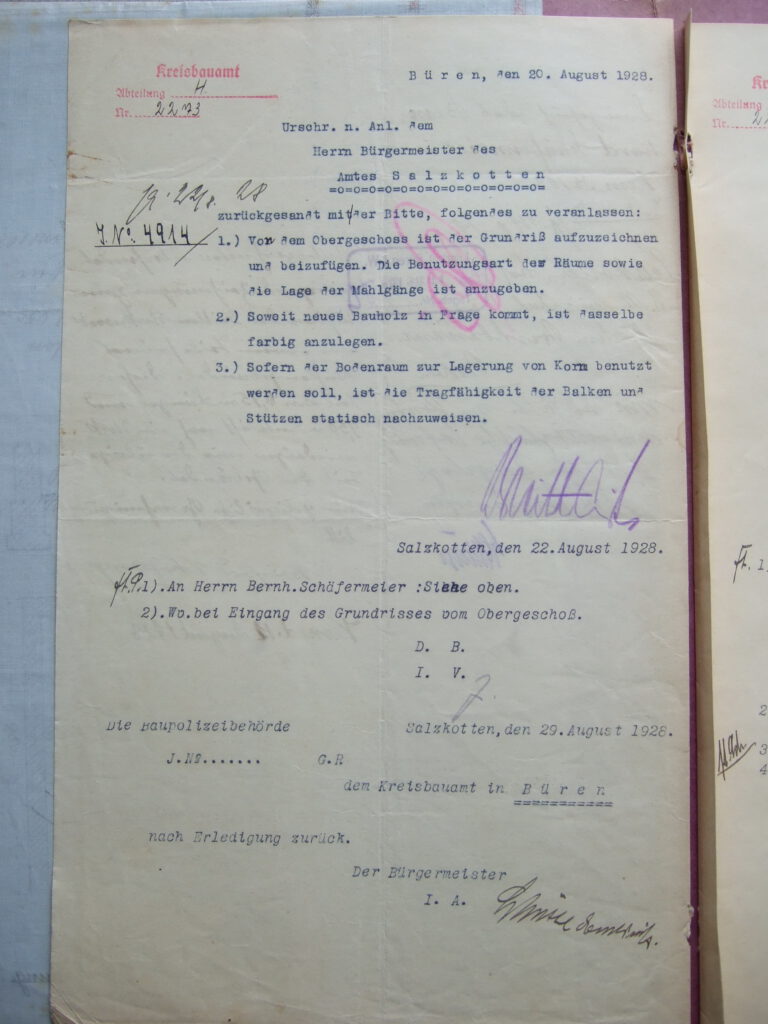 Kreisbauamt
Abteilung H
Nr. 2273
Büren, den 20. August 1928.
Urschr. n. Anl. dem
Herrn Bürgermeister des
Amtes Salzkotten
=o=o=o=o=o=o=o=o=o=o=o=o=o=
22/8. 28
J.No. 4914
zurückgesandt mit der Bitte, folgendes zu veranlassen:
1.) Von dem Obergeschoss ist der Grundriß aufzuzeichnen
und beizufügen. Die Benutzungsart der Räume sowie
die Lage der Mahlgänge ist anzugeben.
2.) Soweit neues Bauholz in Frage kommt, ist dasselbe
farbig anzulegen.
3.) Sofern der Bodenraum zur Lagerung von Korn benutzt
werden soll, ist die Tragfähigkeit der Balken und
Stützen statisch nachzuweisen.
Salzkotten,den 22.August 1928.
1).An Herrn Bernh.Schäfermeier :Siehe oben.
2).Wo.bei Eingang des Grundrisses vom Obergeschoß.
D. B.
I. V.
Die Baupolizeibehörde
Salzkotten,den 29.August 1928.
J.No....... G.R
dem Kreisbauamt in Büren
===========
nach Erledigung zurück.
Der Bürgermeister
I. A.
Kr
Abteilung
Nr. 2
1)
2
3
4